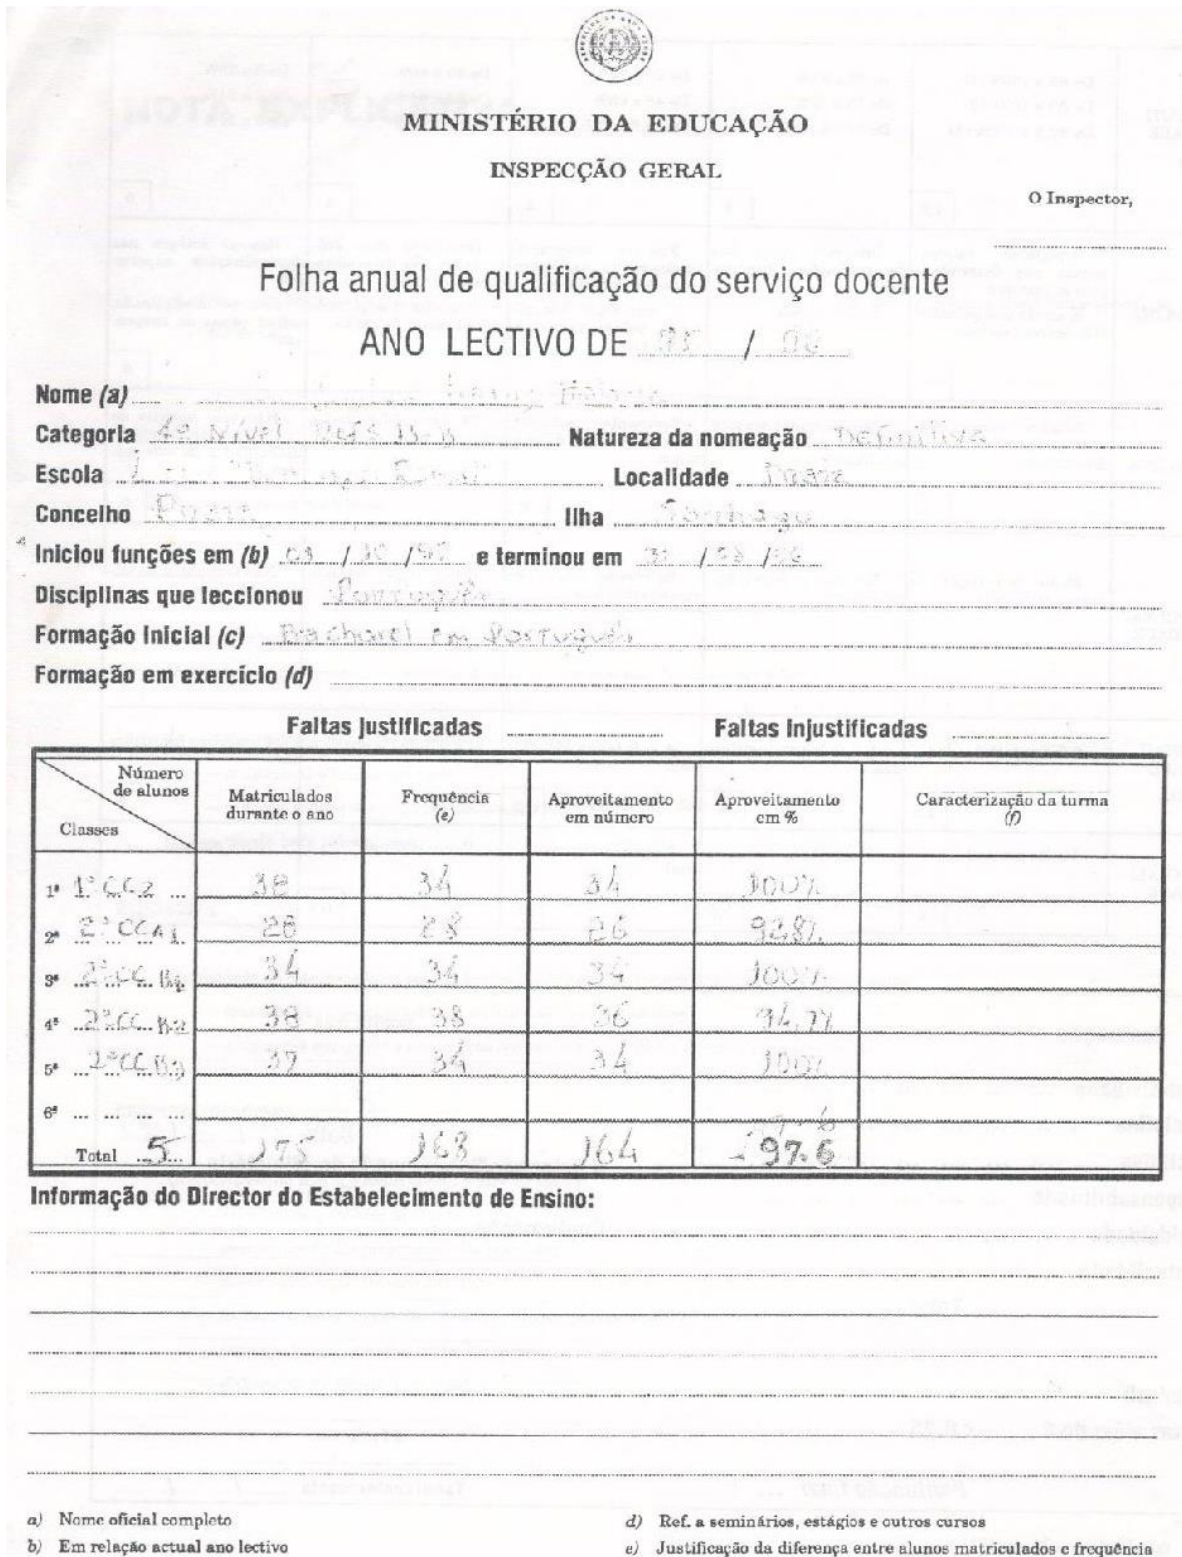 MINISTÉRIO DA EDUCAÇÃO
INSPECÇÃO GERAL
O Inspector,
Folha anual de qualificação do serviço docente
ANO LECTIVO DE 95 / 96
Nome (a)
Categoria 4º Nível Natureza da nomeação Definitiva
Escola Localidade Praia
Concelho Praia Ilha Santiago
Iniciou funções em (b) e terminou em 31
Disciplinas que leccionou Português
Formação Inicial (c) Bacharel em Português
Formação em exercício (d)
Faltas Justificadas Faltas Injustificadas
Número de alunos
Classes
Matriculados durante o ano
Frequência (e)
Aproveitamento em número
Aproveitamento em %
Caracterização da turma (f)
1ª 1º CC2 38 34 34 100%
2ª 2º CCA1 28 28 26 92.8%
3ª 2º CC 34 34 34 100%
4ª 2º CC B2 38 38 36 94.7%
5ª 2º CC B3 37 34 34 100%
6ª
97.6
Total 5 175 168 164 97.6
Informação do Director do Estabelecimento de Ensino:
a) Nome oficial completo
d) Ref. a seminários, estágios e outros cursos
b) Em relação actual ano lectivo
e) Justificação da diferença entre alunos matriculados e frequência